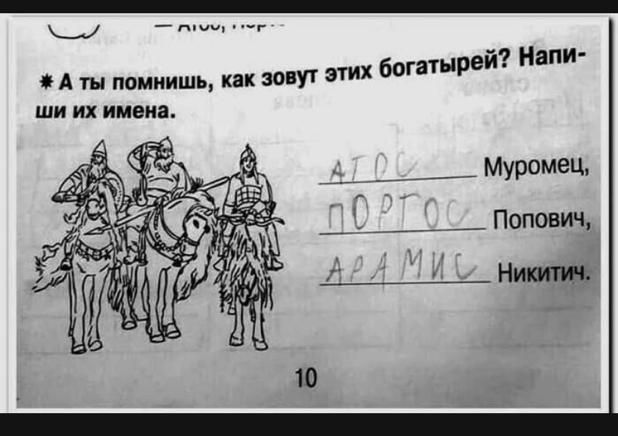 ✷ А ты помнишь, как зовут этих богатырей? Напи-
ши их имена.
АТОС Муромец,
ПОРТОС Попович,
АРАМИС Никитич.
10